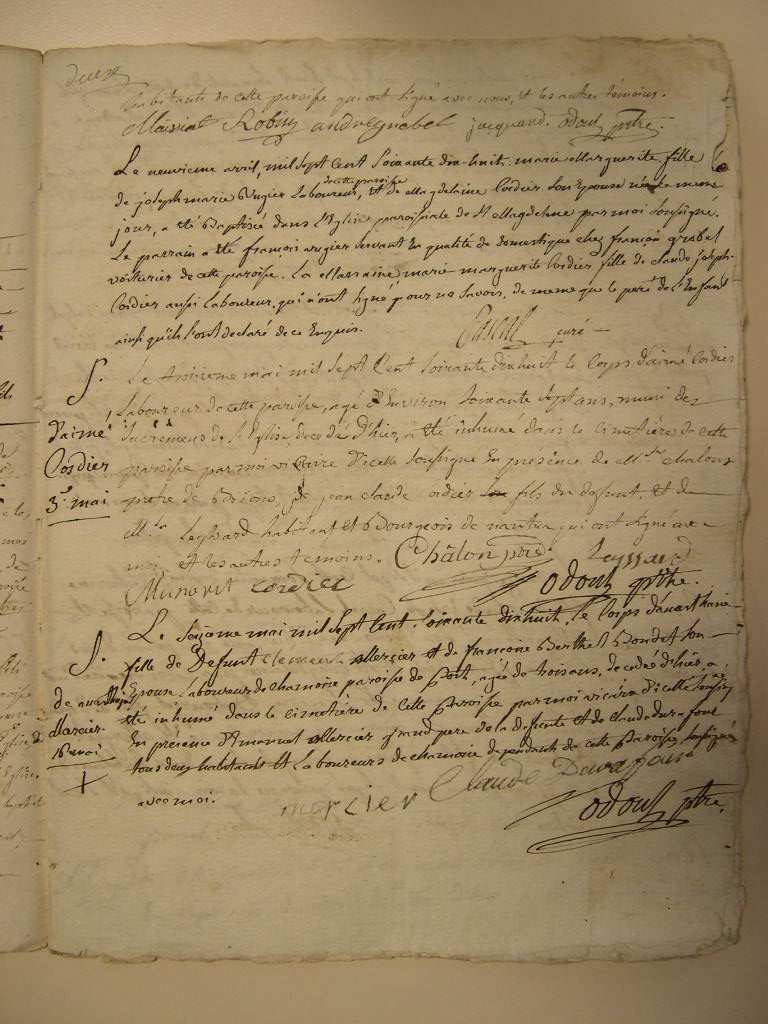 habitants de cette paroisse qui ont signé avec nous, et les autres témoins.
Robin andré grabel jacquand. odoul ptre.
Le neuvieme avril, mil sept Cent soixante dix-huit. marie Marguerite, fille
de joseph marie Bugier Laboureur, de cette paroisse, et de Magdelaine Cordier son Epouse née le meme
jour, a été Baptisée dans L'Eglise paroissiale de Ste Magdelene par moi soussigné.
Le parrain a été françois augier servant En qualité de domestique chez françois grabel
voiturier de cette paroisse. La Marraine marie marguerite Cordier fille de claude joseph
Cordier aussi Laboureur, qui n'ont signé pour ne savoir, de meme que le pere de L'Enfant
ainsi qu'ils l'ont declaré de ce Enquis.
Pascal curé
S.
d'aimé
Cordier
3e mai
Le troisieme mai mil sept Cent soixante dixhuit le Corps d'aimé Cordier
Laboureur de cette paroisse, agé d'Environ soixante sept ans, muni des
sacremens de l'Eglise, decedé d'hier, a été inhumé dans le cimetière de cette
paroisse par moi vicaire d'icelle soussigné En presence de Chalon
pretre de jean claude Cordier fils du defunt, et de
habitant et Bourgeois de nantua qui ont signé avec
moi et les autres temoins. Châlon ptre
Munaret Cordier odoul ptre.
S.
de
Mercier
16 mai
Le seizieme mai mil sept Cent soixante dixhuit, le Corps
fille de Defunt clement Mercier et de francoise Berthet Bondet son
Epouse Laboureurs de chamoise paroisse de Port, agée de trois ans, decedée d'hier, a
été inhumé dans le cimetière de cette Paroisse par moi vicaire d'icelle soussigné
En présence d'Emanuel Mercier grand pere de la deffunte et de claude
tous deux habitants et Laboureurs de chamoise dependant de cette Paroisse soussignés
avec moi. mercier Claude
odoul ptre.